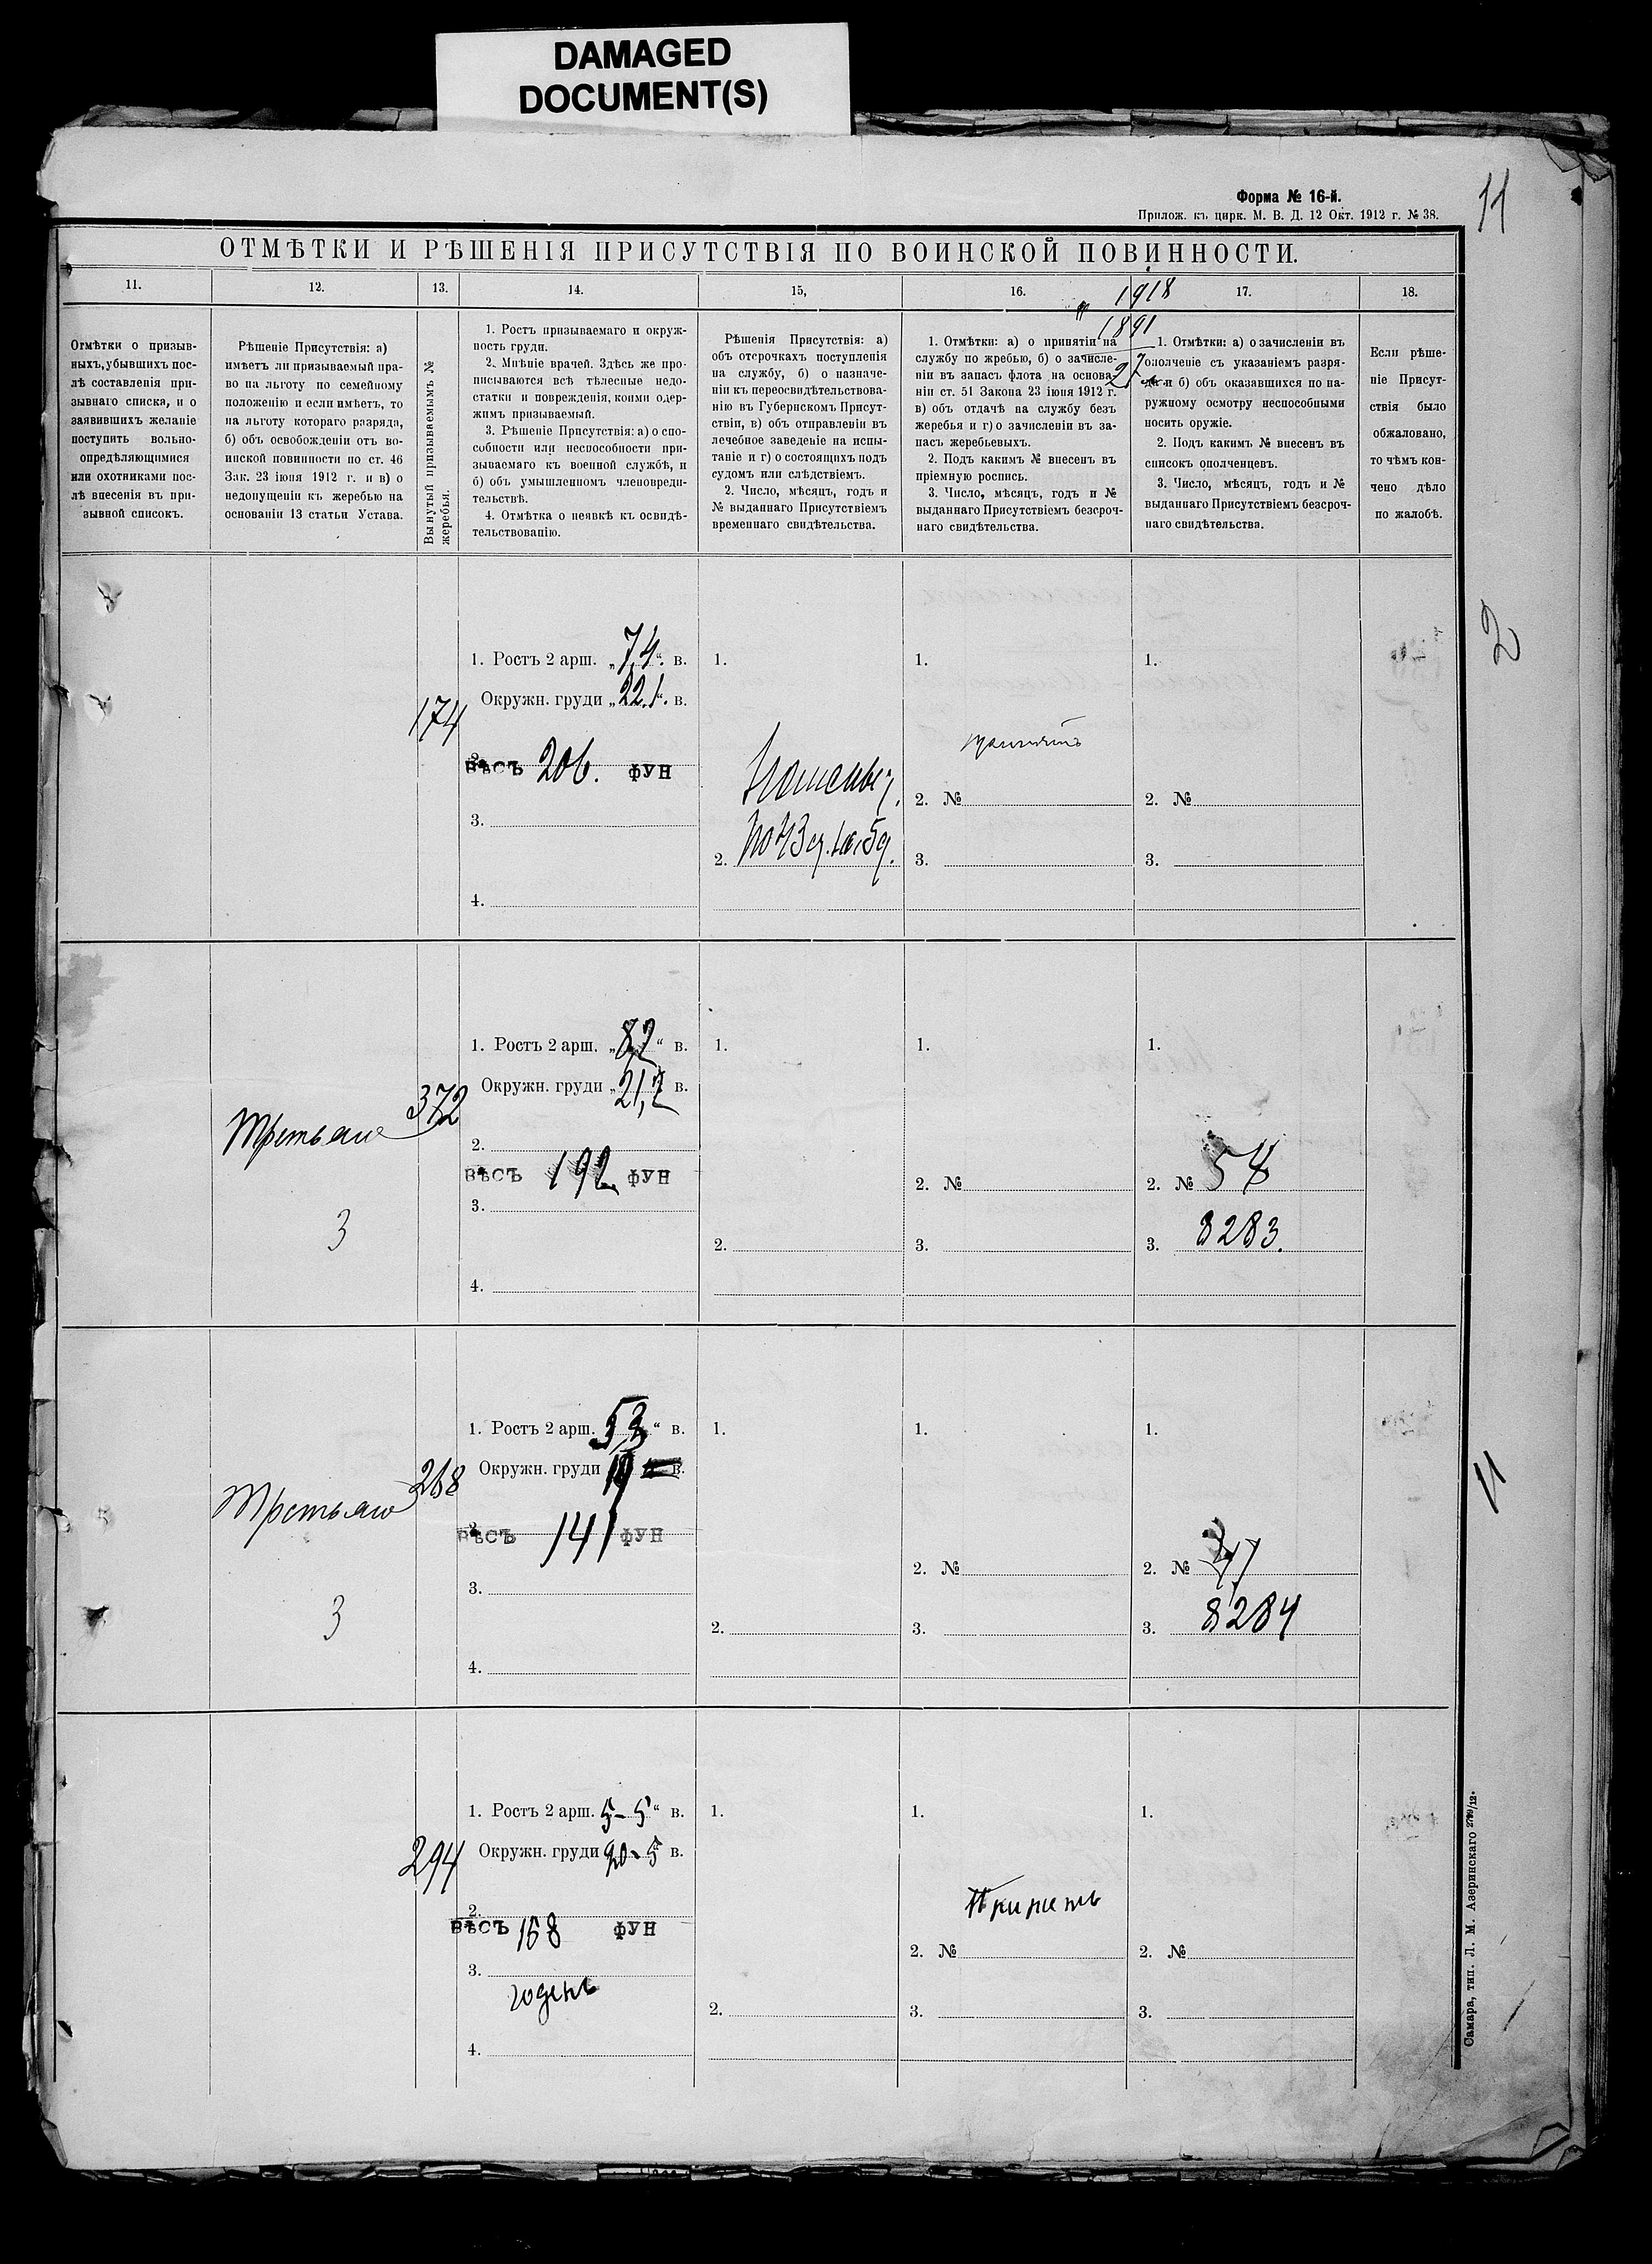 DAMAGED
DOCUMENT(S)
Форма № 16-й.
Прилож. къ цирк. М. В. Д. 12 Окт. 1912 г. № 38.
11
ОТМѢТКИ И РѢШЕНІЯ ПРИСУТСТВІЯ ПО ВОИНСКОЙ ПОВИННОСТИ.
11.
12.
13.
14.
15,
16.
17.
18.
1918
1891
27
Отмѣтки о призыв-
ныхъ, убывшихъ пос-
лѣ составленія при-
зывнаго списка, и о
заявившихъ желаніе
поступить вольно-
опредѣляющимися
или охотниками пос-
лѣ внесенія въ при-
зывной списокъ.
Рѣшеніе Присутствія: а)
имѣетъ ли призываемый пра-
во на льготу по семейному
положенію и если имѣетъ, то
на льготу котораго разряда,
б) объ освобожденіи отъ во-
инской повинности по ст. 46
Зак. 23 іюня 1912 г. и в) о
недопущеніи къ жеребью на
основаніи 13 статьи Устава.
Вынутый призываемымъ №
жеребья.
1. Ростъ призываемаго и окруж-
ность груди.
2. Мнѣніе врачей. Здѣсь же про-
писываются всѣ тѣлесные недо-
статки и поврежденія, коими одер-
жимъ призываемый.
3. Рѣшеніе Присутствія: а) о спо-
собности или неспособности при-
зываемаго къ военной службѣ, и
б) объ умышленномъ членовреди-
тельствѣ.
4. Отмѣтка о неявкѣ къ освидѣ-
тельствованію.
Рѣшенія Присутствія: а)
объ отсрочкахъ поступленія
на службу, б) о назначе-
ніи къ переосвидѣтельствова-
нію въ Губернскомъ Присут-
ствіи, в) объ отправленіи въ
лечебное заведеніе на испы-
таніе и г) о состоящихъ подъ
судомъ или слѣдствіемъ.
2. Число, мѣсяцъ, годъ и
№ выданнаго Присутствіемъ
временнаго свидѣтельства.
1. Отмѣтки: а) о принятіи на
службу по жребью, б) о зачисле-
ніи въ запасъ флота на основа-
ніи ст. 51 Закона 23 іюня 1912 г.
в) объ отдачѣ на службу безъ
жеребья и г) о зачисленіи въ за-
пасъ жеребьевыхъ.
2. Подъ какимъ № внесенъ въ
пріемную роспись.
3. Число, мѣсяцъ, годъ и №
выданнаго Присутствіемъ безсроч-
наго свидѣтельства.
1. Отмѣтки: а) о зачисленіи въ
ополченіе съ указаніемъ разря-
да и б) объ оказавшихся по на-
ружному осмотру неспособными
носить оружіе.
2. Подъ какимъ № внесенъ въ
списокъ ополченцевъ.
3. Число, мѣсяцъ, годъ и №
выданнаго Присутствіемъ безсроч-
наго свидѣтельства.
Если рѣше-
ніе Присут-
ствія было
обжаловано,
то чѣмъ кон-
чено дѣло
по жалобѣ.
2
174
1. Ростъ 2 арш. „7,4“ в.
Окружн. груди „22,1“ в.
2.
ВѢСЪ 206. ФУН
3.
4.
1.
2.
1.
2. №
3.
1.
2. №
3.
Третьяго
3
372
1. Ростъ 2 арш. „8,2“ в.
Окружн. груди „21,2 в.
2.
ВѢСЪ 192 ФУН
3.
4.
1.
2.
1.
2. №
3.
1.
2. № 58
3. 8283.
Третьяго
3
268
1. Ростъ 2 арш. 5,3“ в.
Окружн. груди 19 в.
2.
ВѢСЪ 141 ФУН
3.
4.
1.
2.
1.
2. №
3.
1.
2. № 41
3. 8284
11
294
1. Ростъ 2 арш. 5-5“ в.
Окружн. груди 20-5 в.
2.
ВѢСЪ 158 ФУН
3.
годенъ
4.
1.
2.
1.
Принять
2. №
3.
1.
2. №
3.
Самара, тип. Л. М. Азеринскаго